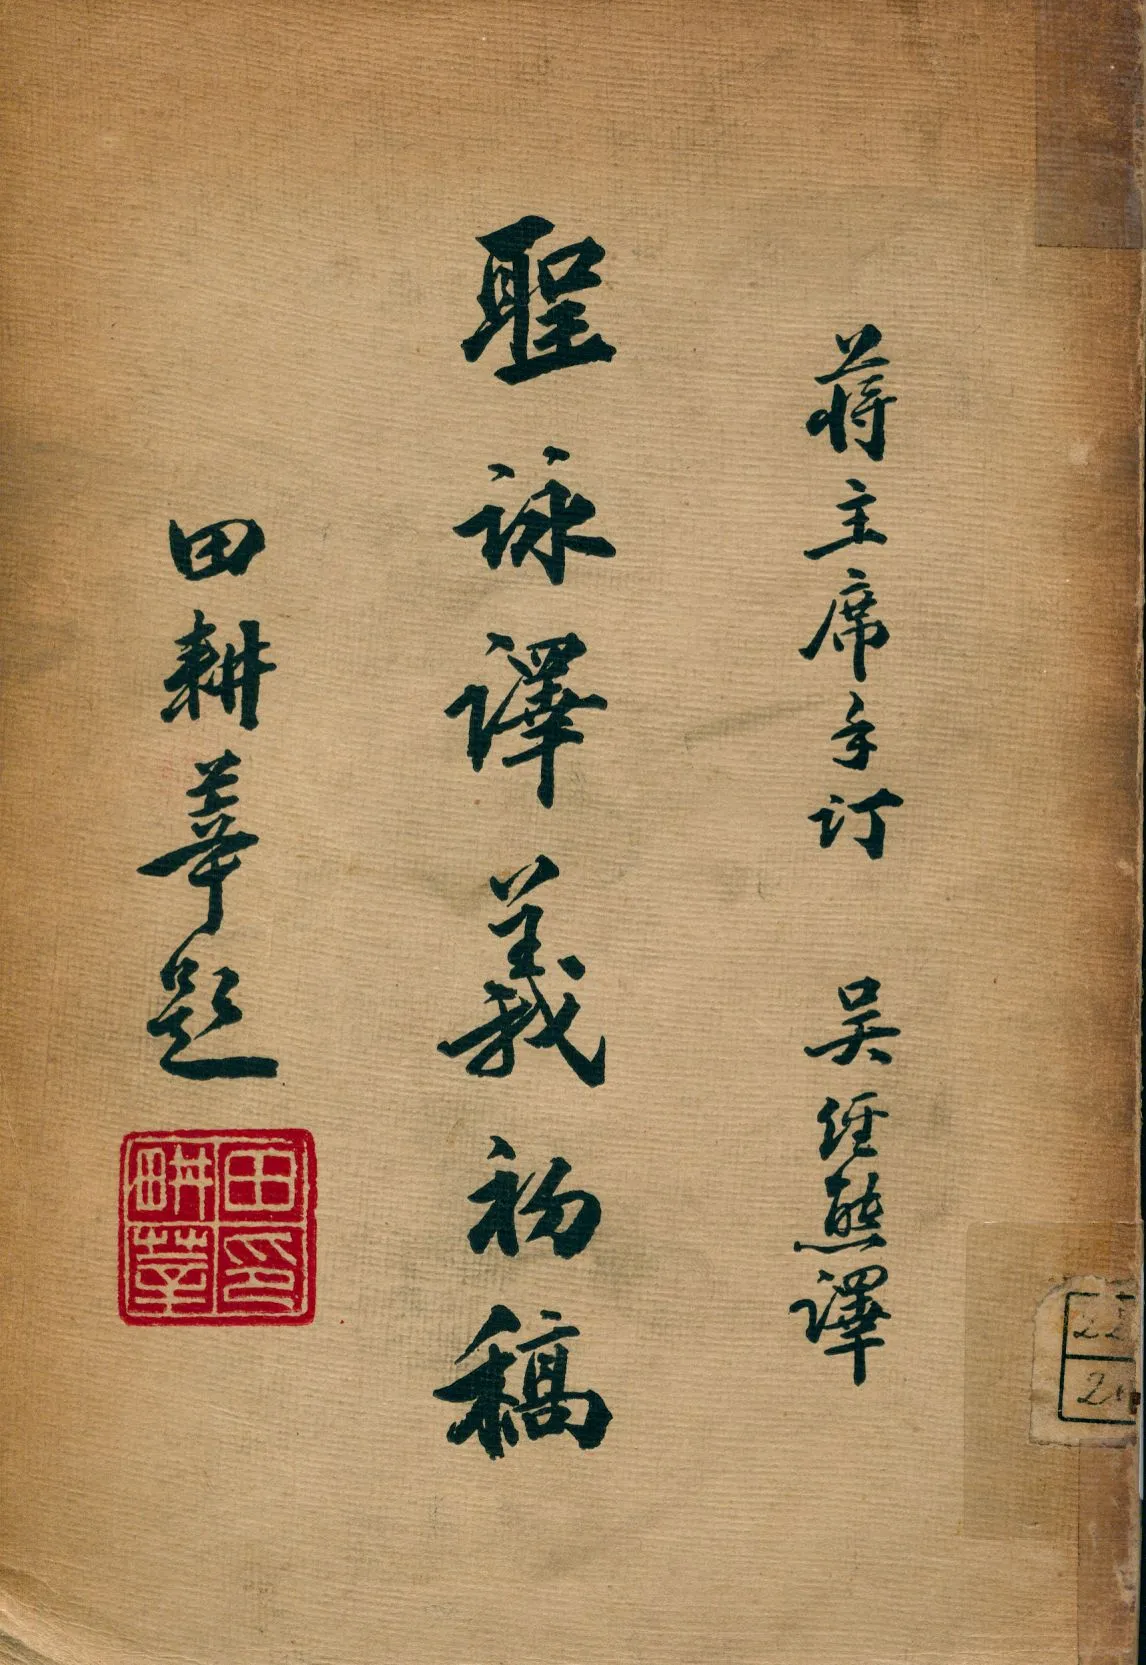 蔣主席手訂　吳經熊譯
聖詠譯義初稿
田耕莘題
田耕莘印